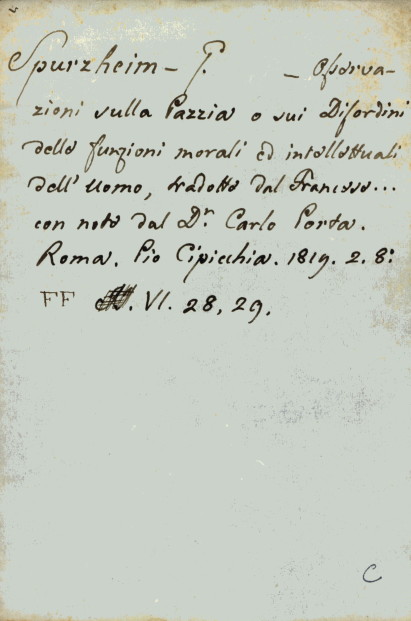 Spurzheim – G. – Osserva-
zioni sulla Pazzia o sui Disordini
delle funzioni morali ed intellettuali
dell' Uomo, tradotte dal Francese...
con note dal Dr. Carlo Porta.
Roma. Pio Cipicchia. 1819. 2. 8:
FF VI. 28, 29.
C